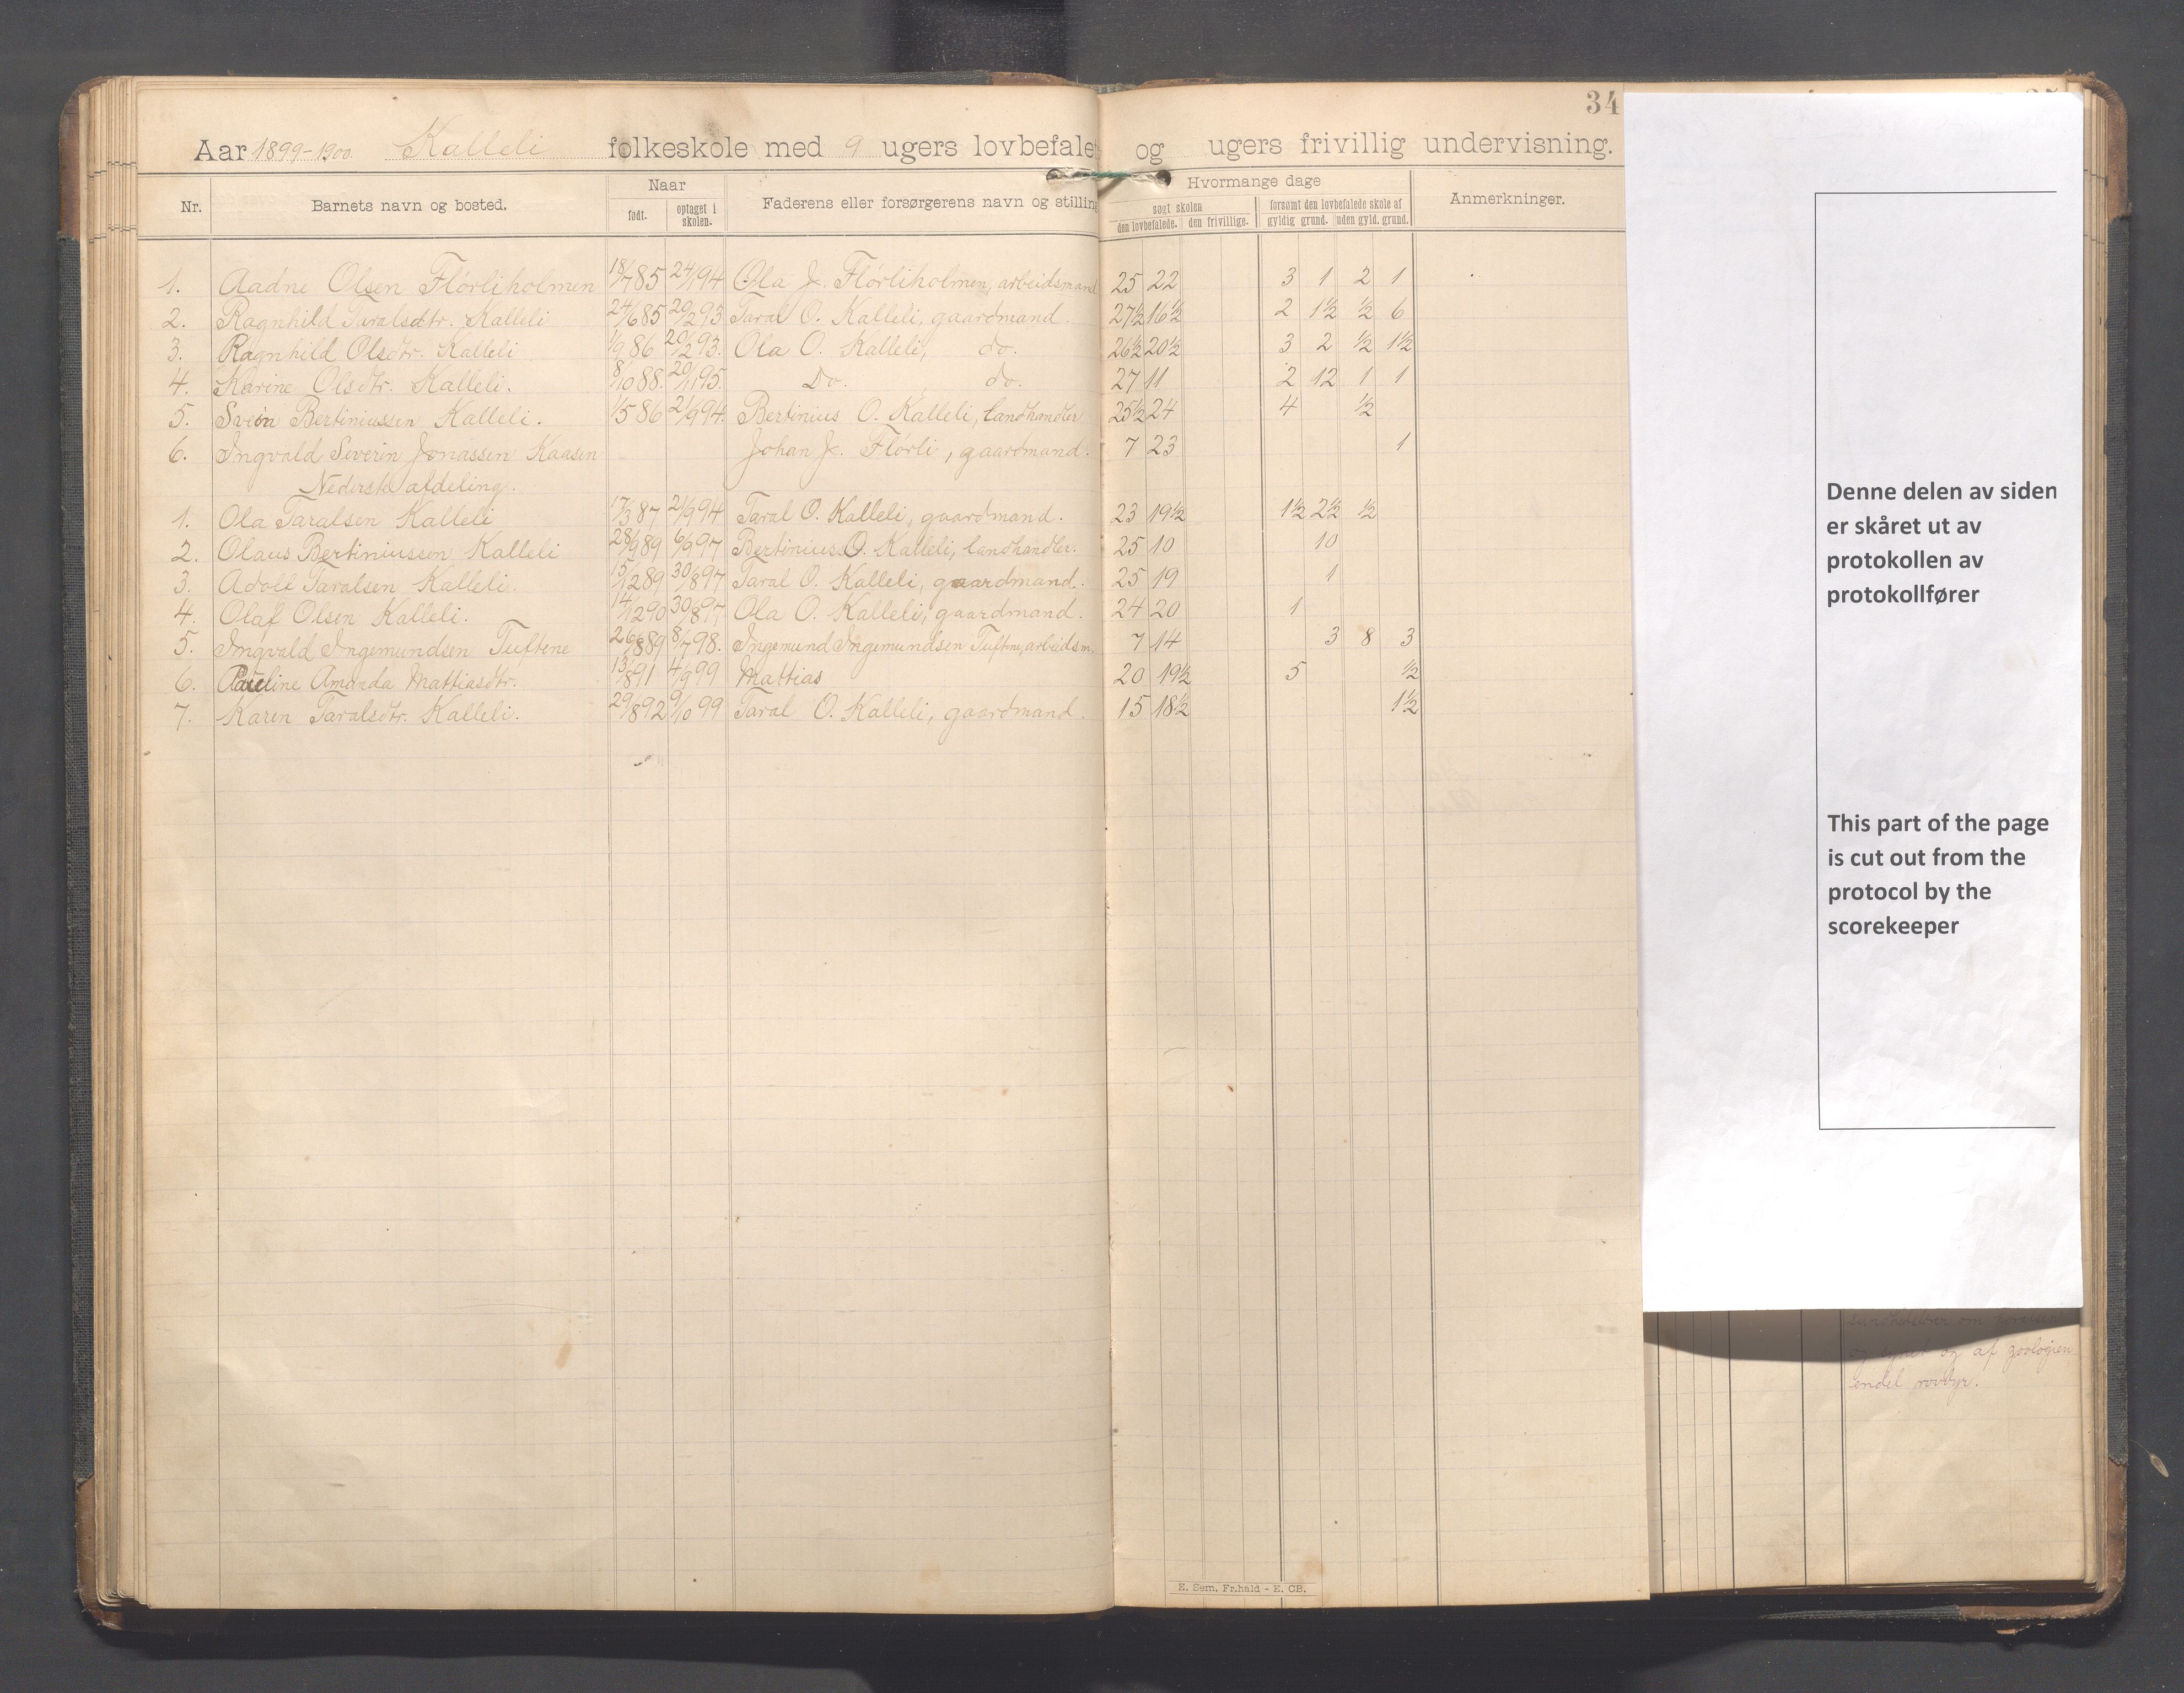 34
Aar 1899-1900. Kalleli folkeskole med 9 ugers lovbefalet og ugers frivillig undervisning.
Nr. Barnets navn og bosted. Naar Faderens eller forsørgerens navn og stilling Hvormange dage Anmerkninger.
født. optaget i skolen. søgt skolen forsømt den lovbefalede skole af
den lovbefalede. den frivillige. gyldig grund. uden gyld. grund.
1. Aadne Olsen Flörliholmen 18/7 85 24/1 94 Ola J. Flörliholmen, arbeidsmand 25 22 3 1 2 1
2. Ragnhild Taralsdtr. Kalleli 24/6 85 20/2 93 Taral O. Kalleli, gaardmand. 27½ 16½ 2 1½ ½ 6
3. Ragnhild Olsdtr. Kalleli 1/9 86 20/2 93. Ola O. Kalleli, do. 26½ 20½ 3 2 ½ 1½
4. Karine Olsdtr. Kalleli. 8/10 88. 20/11 95. Do. do. 27 11 2 12 1 1
5. Svein Bertiniussen Kalleli. 1/5 86 21/9 94. Bertinius O. Kalleli, landhandler 25½ 24 4 ½
6. Ingvald Severin Jonassen Kaasen Johan J. Flörli, gaardmand. 7 23 1
Nederste afdeling.
1. Ola Taralsen Kalleli 17/3 87 21/9 94 Taral O. Kalleli, gaardmand. 23 19½ 1½ 2½ ½
2. Olaus Bertiniussen Kalleli 28/9 89 6/9 97 Bertinius O. Kalleli, landhandler. 25 10 10
3. Adolf Taralsen Kalleli. 15/12 89 30/8 97 Taral O. Kalleli, gaardmand. 25 19 1
4. Olaf Olsen Kalleli. 14/12 90 30/8 97 Ola O. Kalleli, gaardmand. 24 20 1
5. Ingvald Ingemundsen Tuftene 26/8 89 8/7 98. Ingemund Ingemundsen Tuftene, arbeidsm. 7 14 3 8 3
6. Pauline Amanda Mattiasdtr. 13/8 91 4/9 99 Mattias 20 19½ 5 ½
7. Karen Taralsdtr. Kalleli. 29/8 92 9/10 99 Taral O. Kalleli, gaardmand. 15 18½ 1½
E. Sem, Fr.hald - E. CB.
Denne delen av siden
er skåret ut av
protokollen av
protokollfører
This part of the page
is cut out from the
protocol by the
scorekeeper
og af zoologien
endel rovdyr.